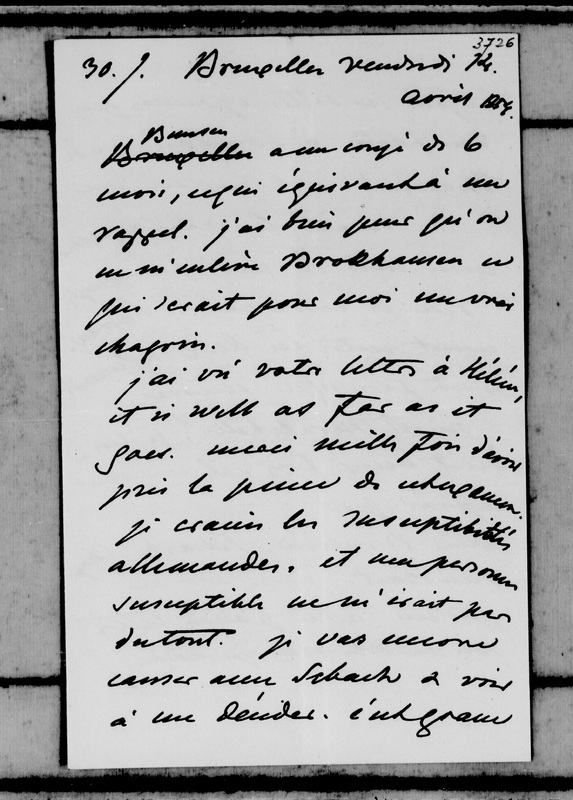 3726
30. J. Bruxelles vendredi 14.
avril 1854.
Bunsen
Bruxelles a un congé de 6
mois, ce qui équivaut à un
rappel. j'ai bien peur qu'on
ne m'enlève Brokhausen ce
qui serait pour moi un vrai
chagrin.
j'ai vu votre lettre à Hélène,
it is well as far as it
goes. merci mille fois d'avoir
pris la peine de
je crains les susceptibilités
allemandes. et une personne
susceptible ne m'irait pas
du tout. je vas encore
causer avec Schach ce soir
à me décider. c'est grave